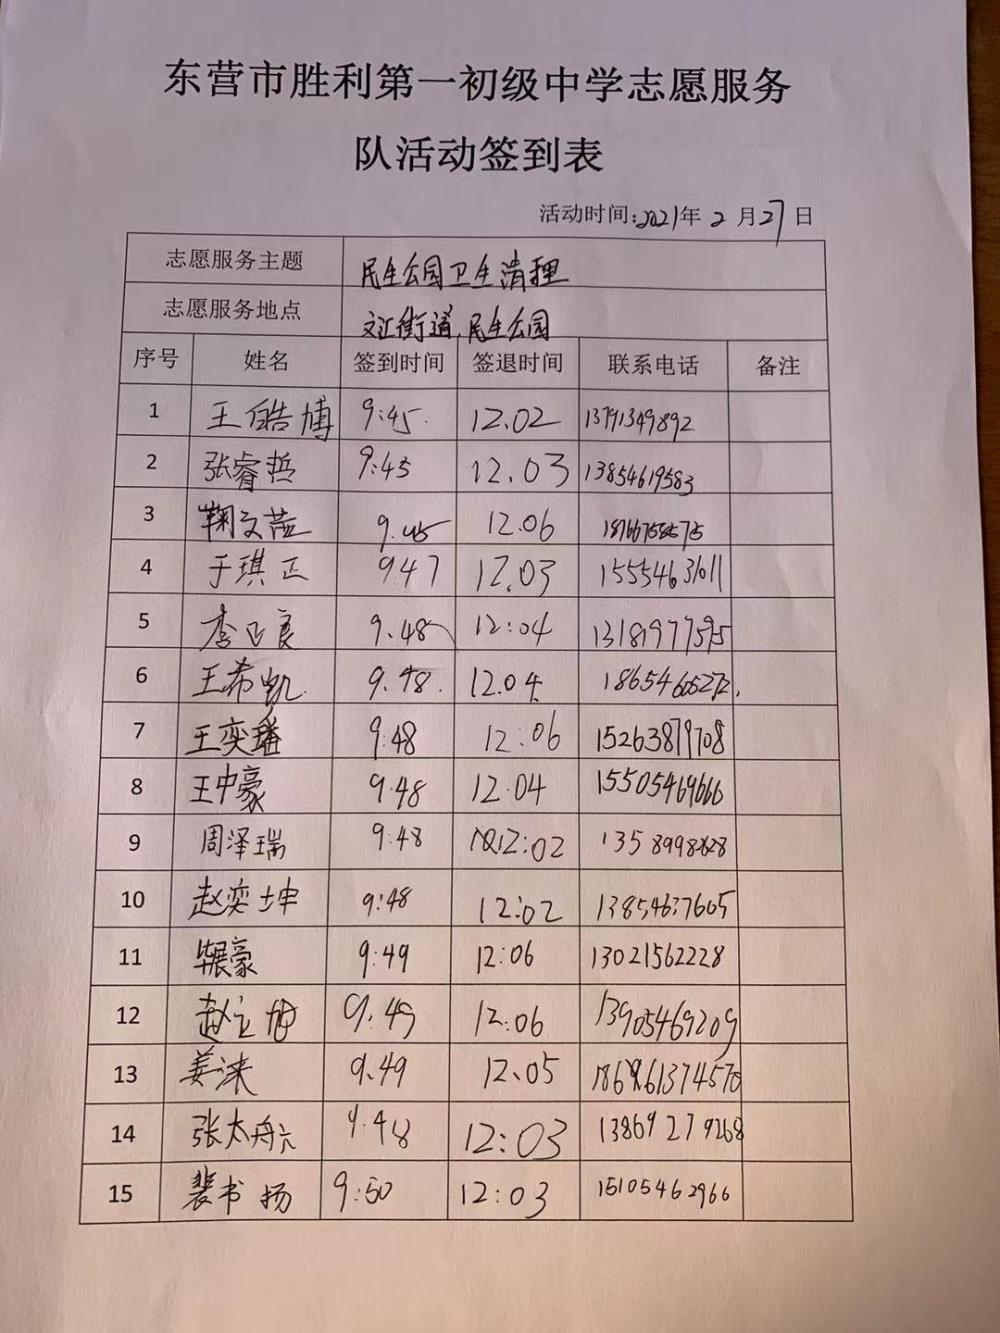 东营市胜利第一初级中学志愿服务
队活动签到表
活动时间:2021年 2 月27日
志愿服务主题 民生公园卫生清理
志愿服务地点 文汇街道,民生公园
序号 姓名 签到时间 签退时间 联系电话 备注
1 王皓博 9:45. 12.02 13791349892
2 张睿哲 9:45 12.03 13854619583
3 鞠文 9.45 12.06
4 于琪正 947 12.03 15554631011
5 李正良 9.48 12:04 13181977595
6 王希凯. 9.48. 12.04 18654605272.
7 王奕璠 9:48 12:06 15263879708
8 王中豪 9.48 12.04 15505469666
9 周泽瑞 9:48 12:02 13589988828
10 赵奕坤 9:48 12:02 13854637605
11 展豪 9:49 12:06 13021562228
12 赵 9.49 12:06 13905469209
13 姜涞 9.49 12.05
14 张太舟 9.48 12:03 13869279268
15 裴书扬 9:50 12:03 15105462966